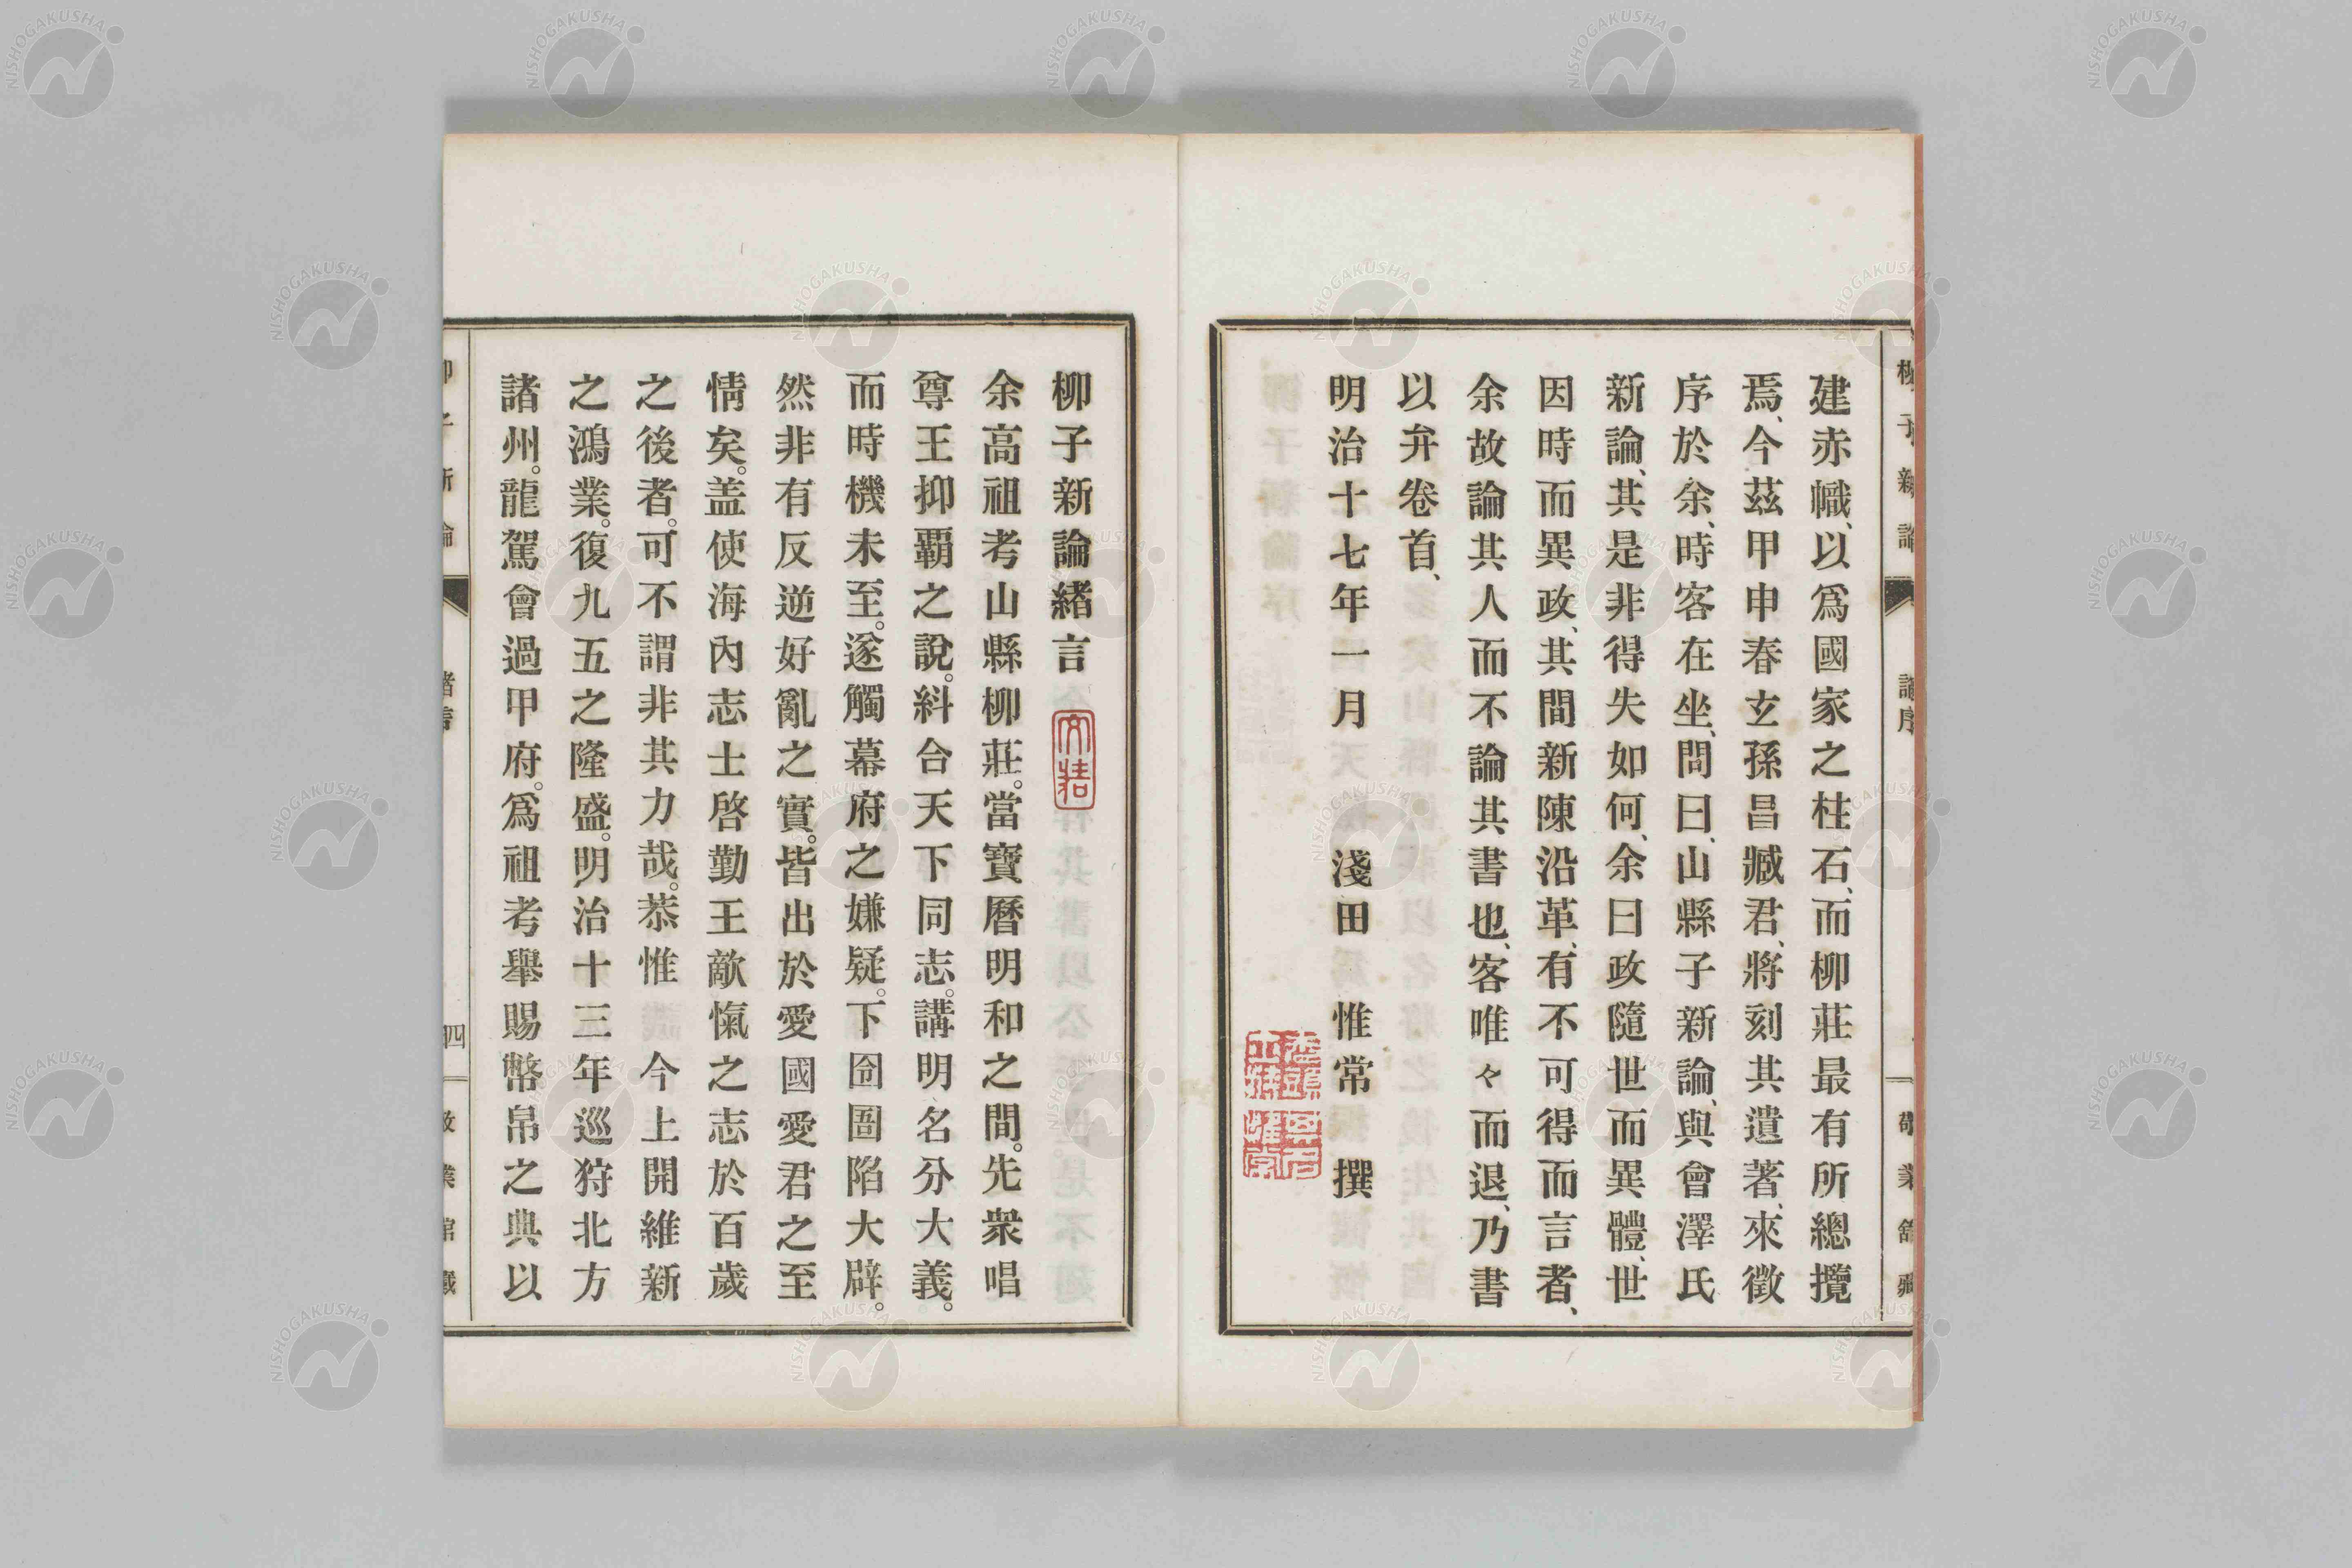 建赤幟、以爲國家之柱石、而柳莊最有所總攬
焉、今茲甲申春玄孫昌臧君、將刻其遺著、來徵
序於余、時客在坐、問曰、山縣子新論、與會澤氏
新論、其是非得失如何、余曰政隨世而異體、世
因時而異政、其間新陳沿革、有不可得而言者、
余故論其人而不論其書也、客唯々而退、乃書
以弁卷首、
明治十七年一月　淺田　惟常　撰
柳子新論緒言
余高祖考山縣柳莊。當寶曆明和之間。先衆唱
尊王抑覇之說。糾合天下同志。講明名分大義。
而時機未至。遂觸幕府之嫌疑。下囹圄陷大辟。
然非有反逆好亂之實。皆出於愛國愛君之至
情矣。盖使海內志士啓勤王敵愾之志於百歲
之後者。可不謂非其力哉。恭惟　今上開維新
之鴻業。復九五之隆盛。明治十三年巡狩北方
諸州。龍駕會過甲府。爲祖考舉賜幣帛之典以
四
NISHOGAKUSHA